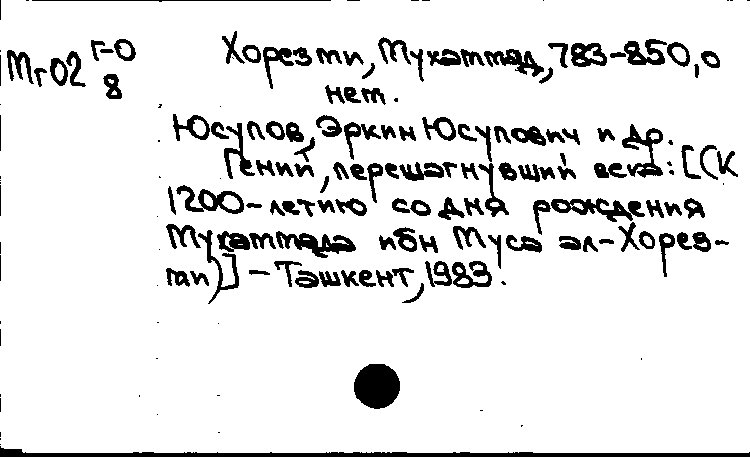 Мг02 Г-0
8
Хорезми, Мухаммад, 783-850, о
нем.
Юсупов, Эркин Юсупович и др.
Гений, перешагнувший века: [(К
1200-летию со дня рождения
Мухаммада ибн Муса ал-Хорез-
ми)] - Ташкент, 1983.